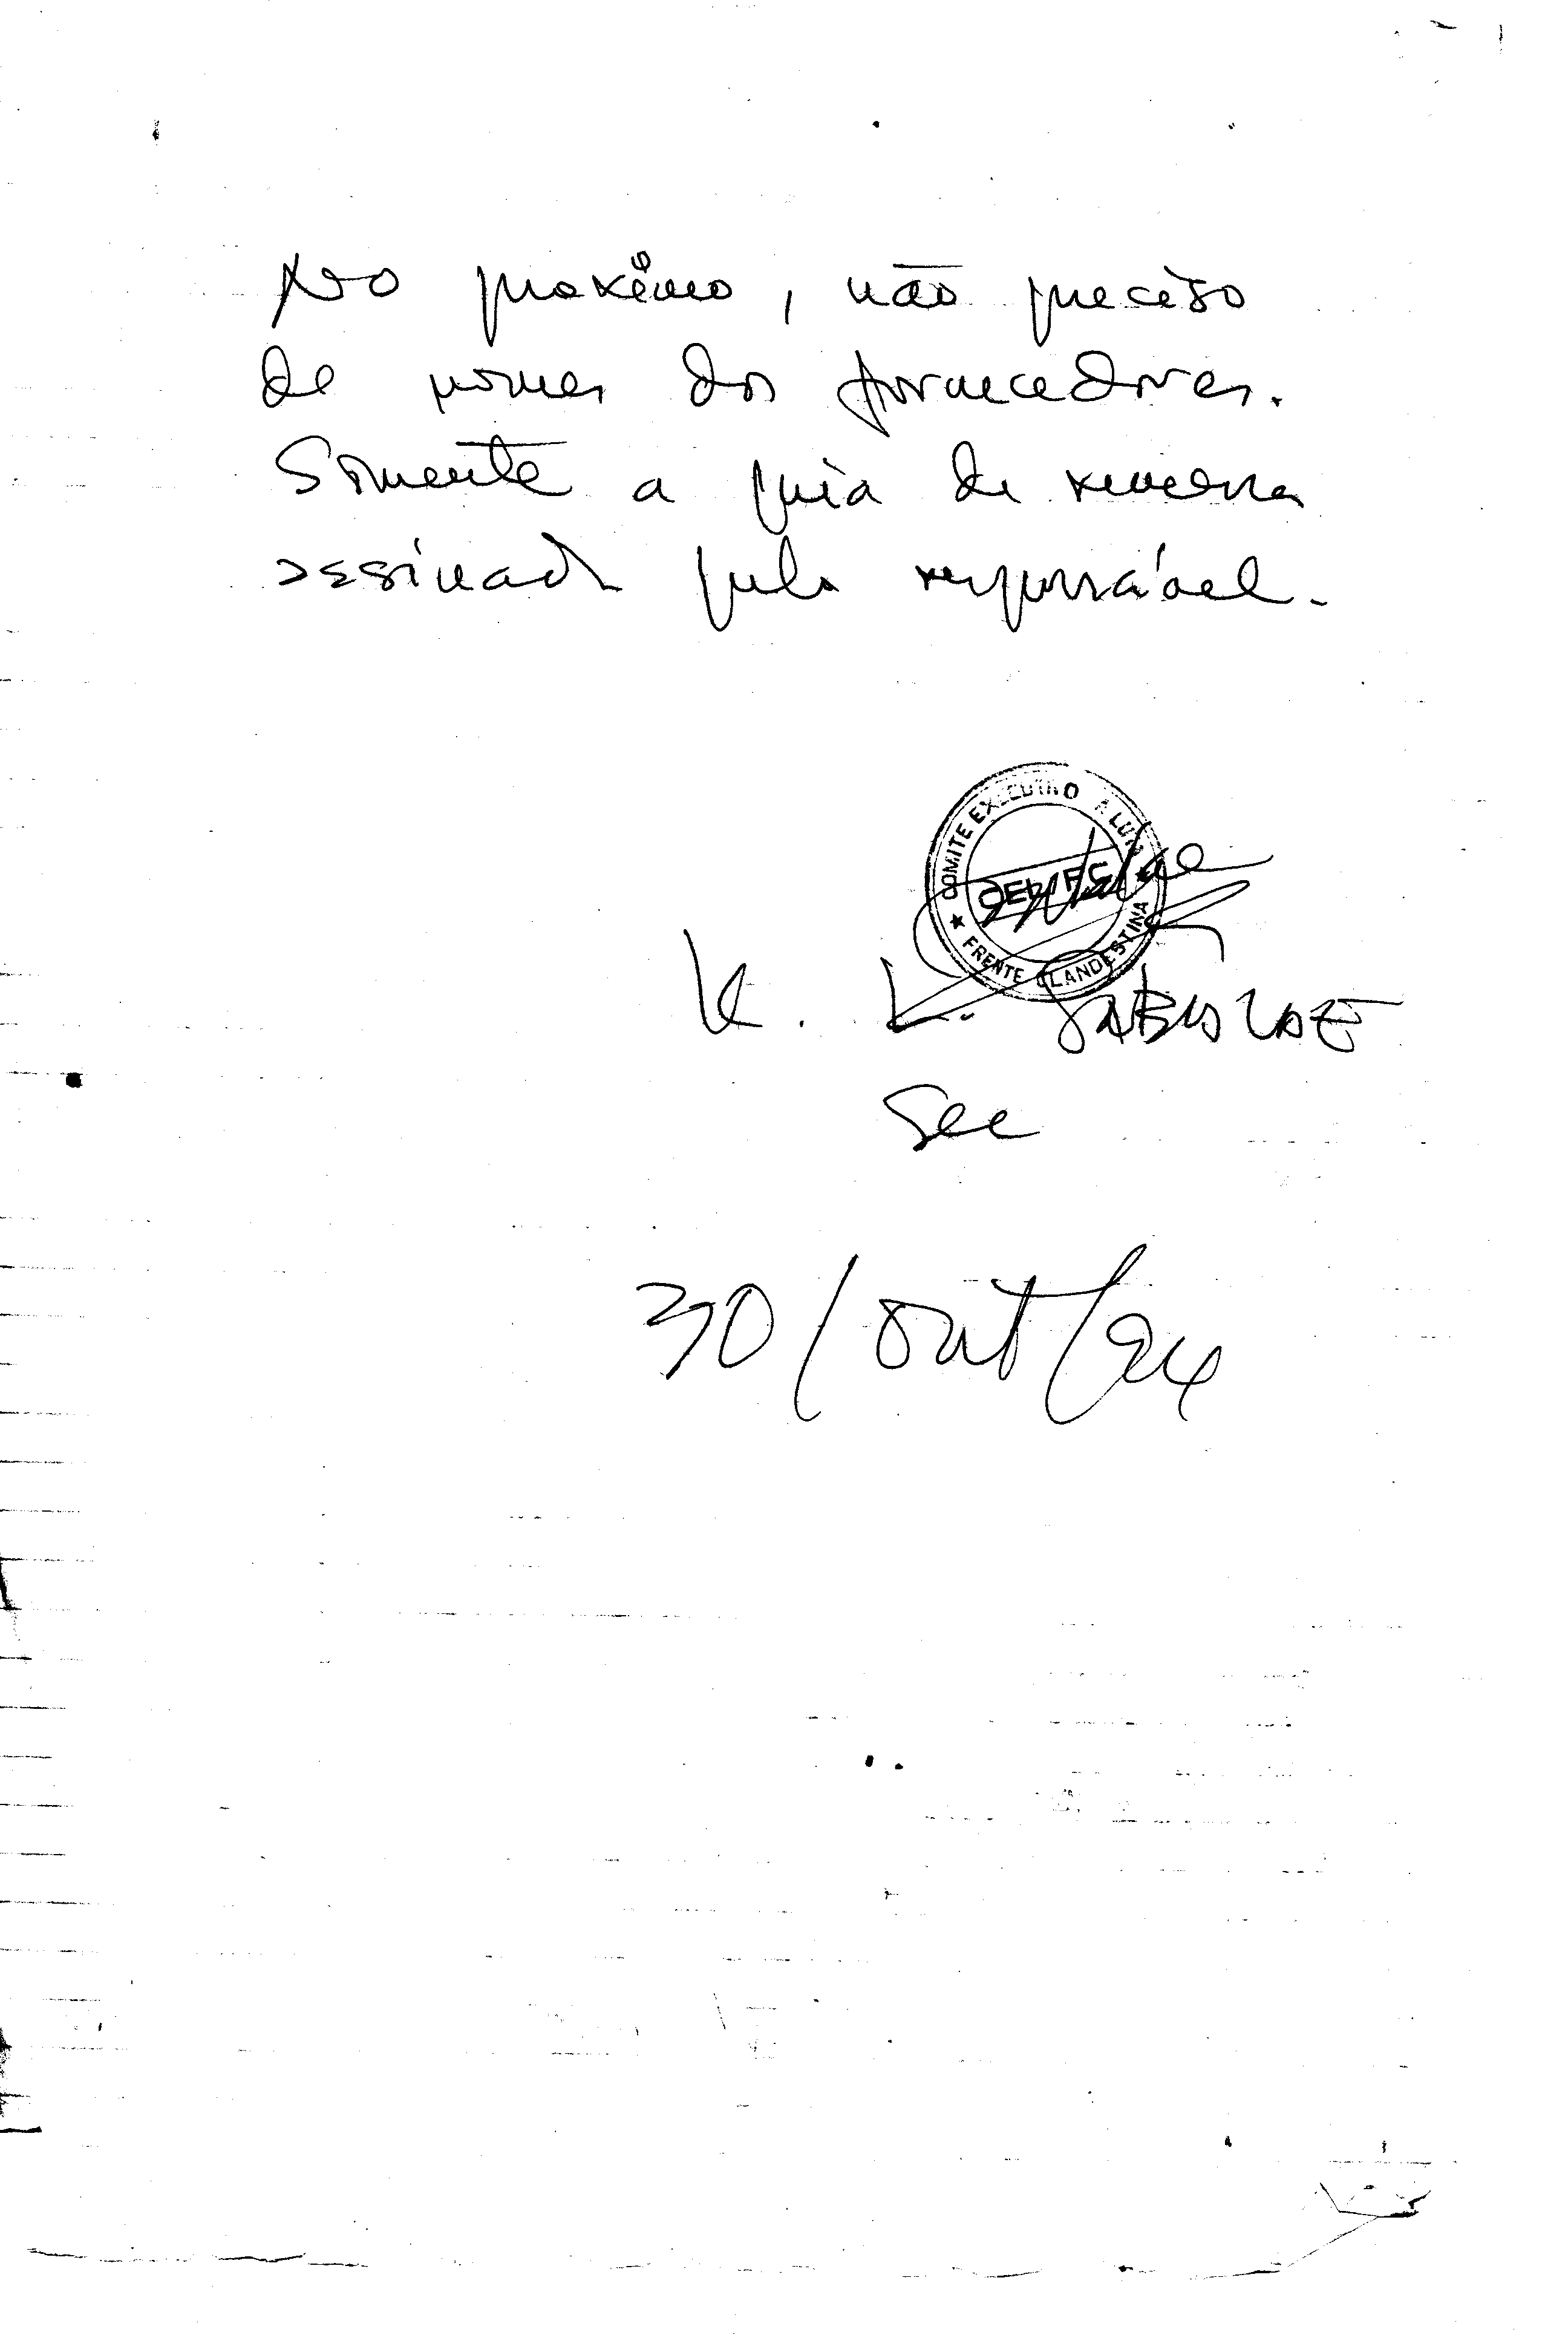 No proximo, não preciso
de nomes dos fornecedores.
Somente a guia de remessa
assinada pelo responsável.
COMITE EXECUTIVO A LUTA
CEL/FC
★ FRENTE CLANDESTINA ★
K. K.
Sec
30/out/94